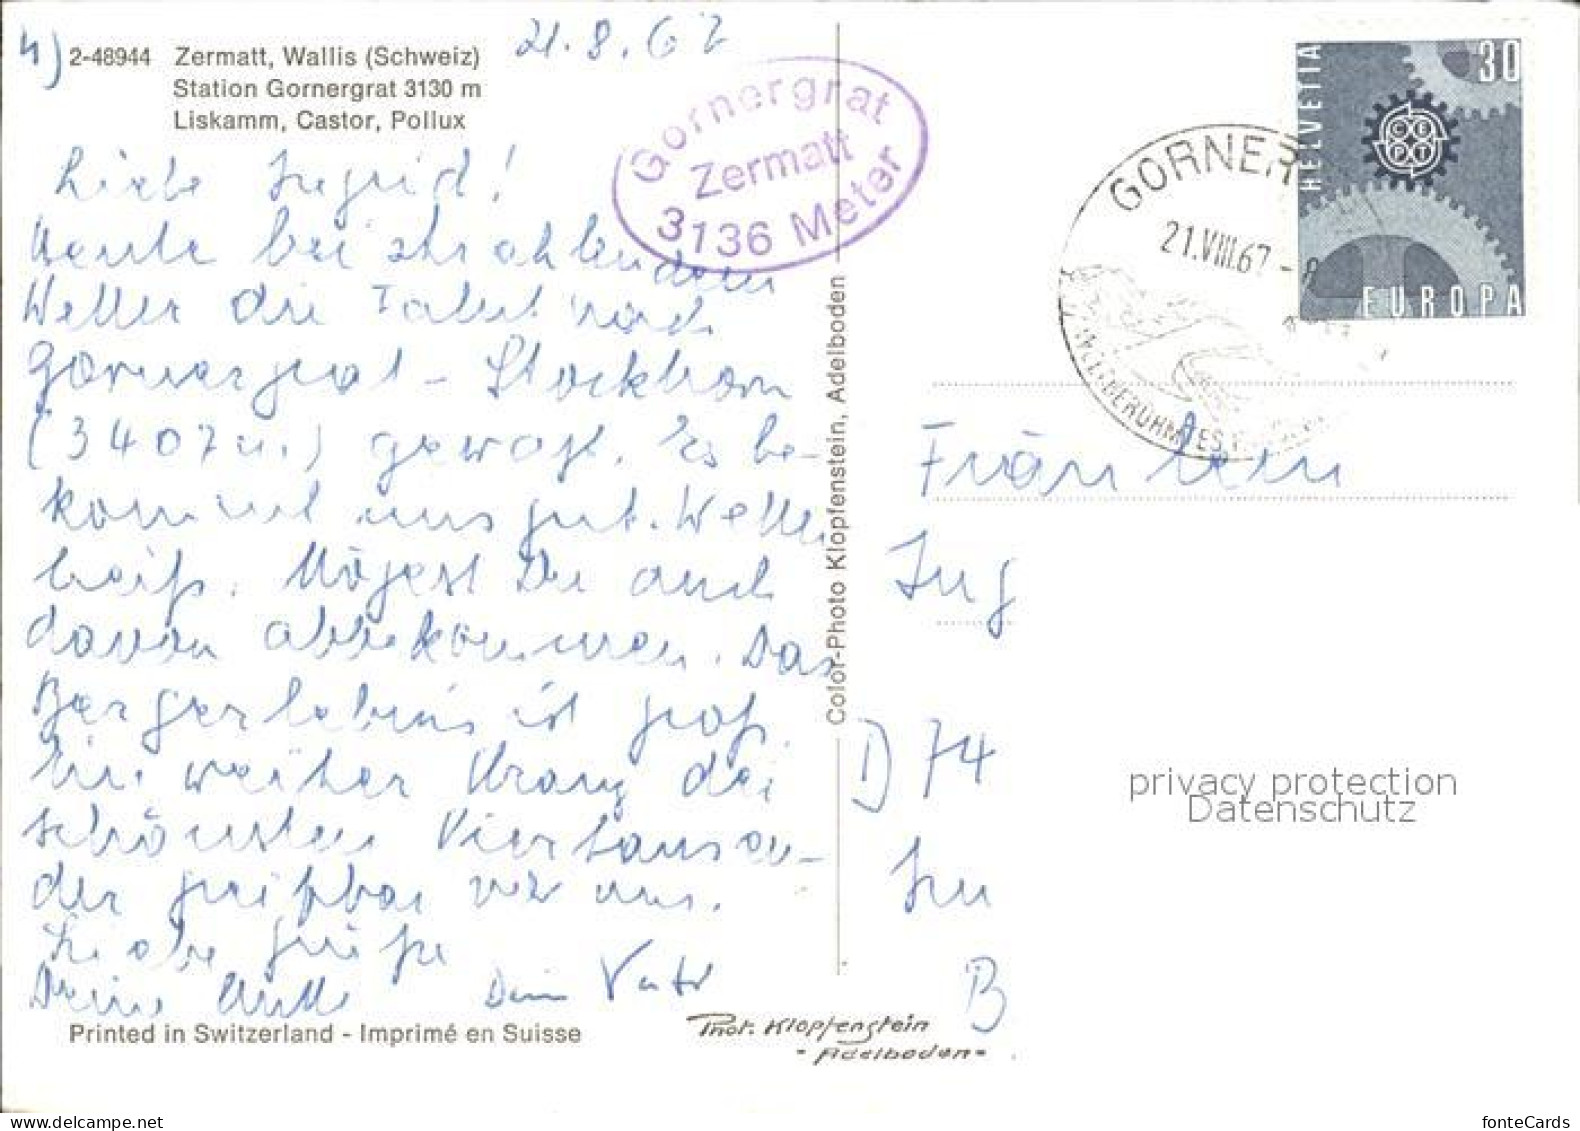 4) 2-48944 Zermatt, Wallis (Schweiz) 21.8.67
Station Gornergrat 3130 m
Liskamm, Castor, Pollux
Gornergrat
Zermatt
3136 Meter
HELVETIA
30
CEPT
EUROPA
GORNER
21.VIII.67 - 8
Liebe Ingrid!
Heute bei strahlendem
Wetter die Fahrt nach
Gornergrat - Stockhorn
(3407 m.) gewagt. Es be-
kommt uns gut. Wetter
heiß. Mögest Du auch
davon abbekommen. Das
Bergerlebnis ist groß
Ein weißer Kranz der
schönsten Viertausen-
der greifbar vor uns.
Liebe Grüße
Deine Mutti Dein Vater
Printed in Switzerland - Imprimé en Suisse
Color-Photo Klopfenstein, Adelboden
Fräulein
Ing
D 74
B
privacy protection
Datenschutz
Phot. Klopfenstein
- Adelboden -
fonteCards